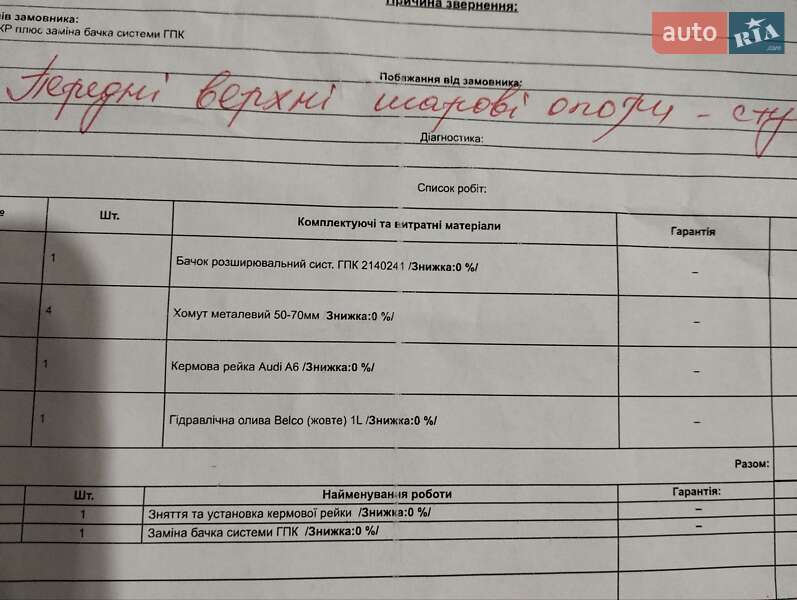 Причина звернення:
ів замовника:
КР плюс заміна бачка системи ГПК
auto RIA .com
Побажання від замовника:
Передні верхні шарові опори - сту
Діагностика:
Список робіт:
№ Шт. Комплектуючі та витратні матеріали Гарантія
1 Бачок розширювальний сист. ГПК 2140241 /Знижка:0 %/ –
4 Хомут металевий 50-70мм Знижка:0 %/ –
1 Кермова рейка Audi A6 /Знижка:0 %/ –
1 Гідравлічна олива Belco (жовте) 1L /Знижка:0 %/ –
Разом:
Шт. Найменування роботи Гарантія:
1 Зняття та установка кермової рейки /Знижка:0 %/ –
1 Заміна бачка системи ГПК /Знижка:0 %/ –